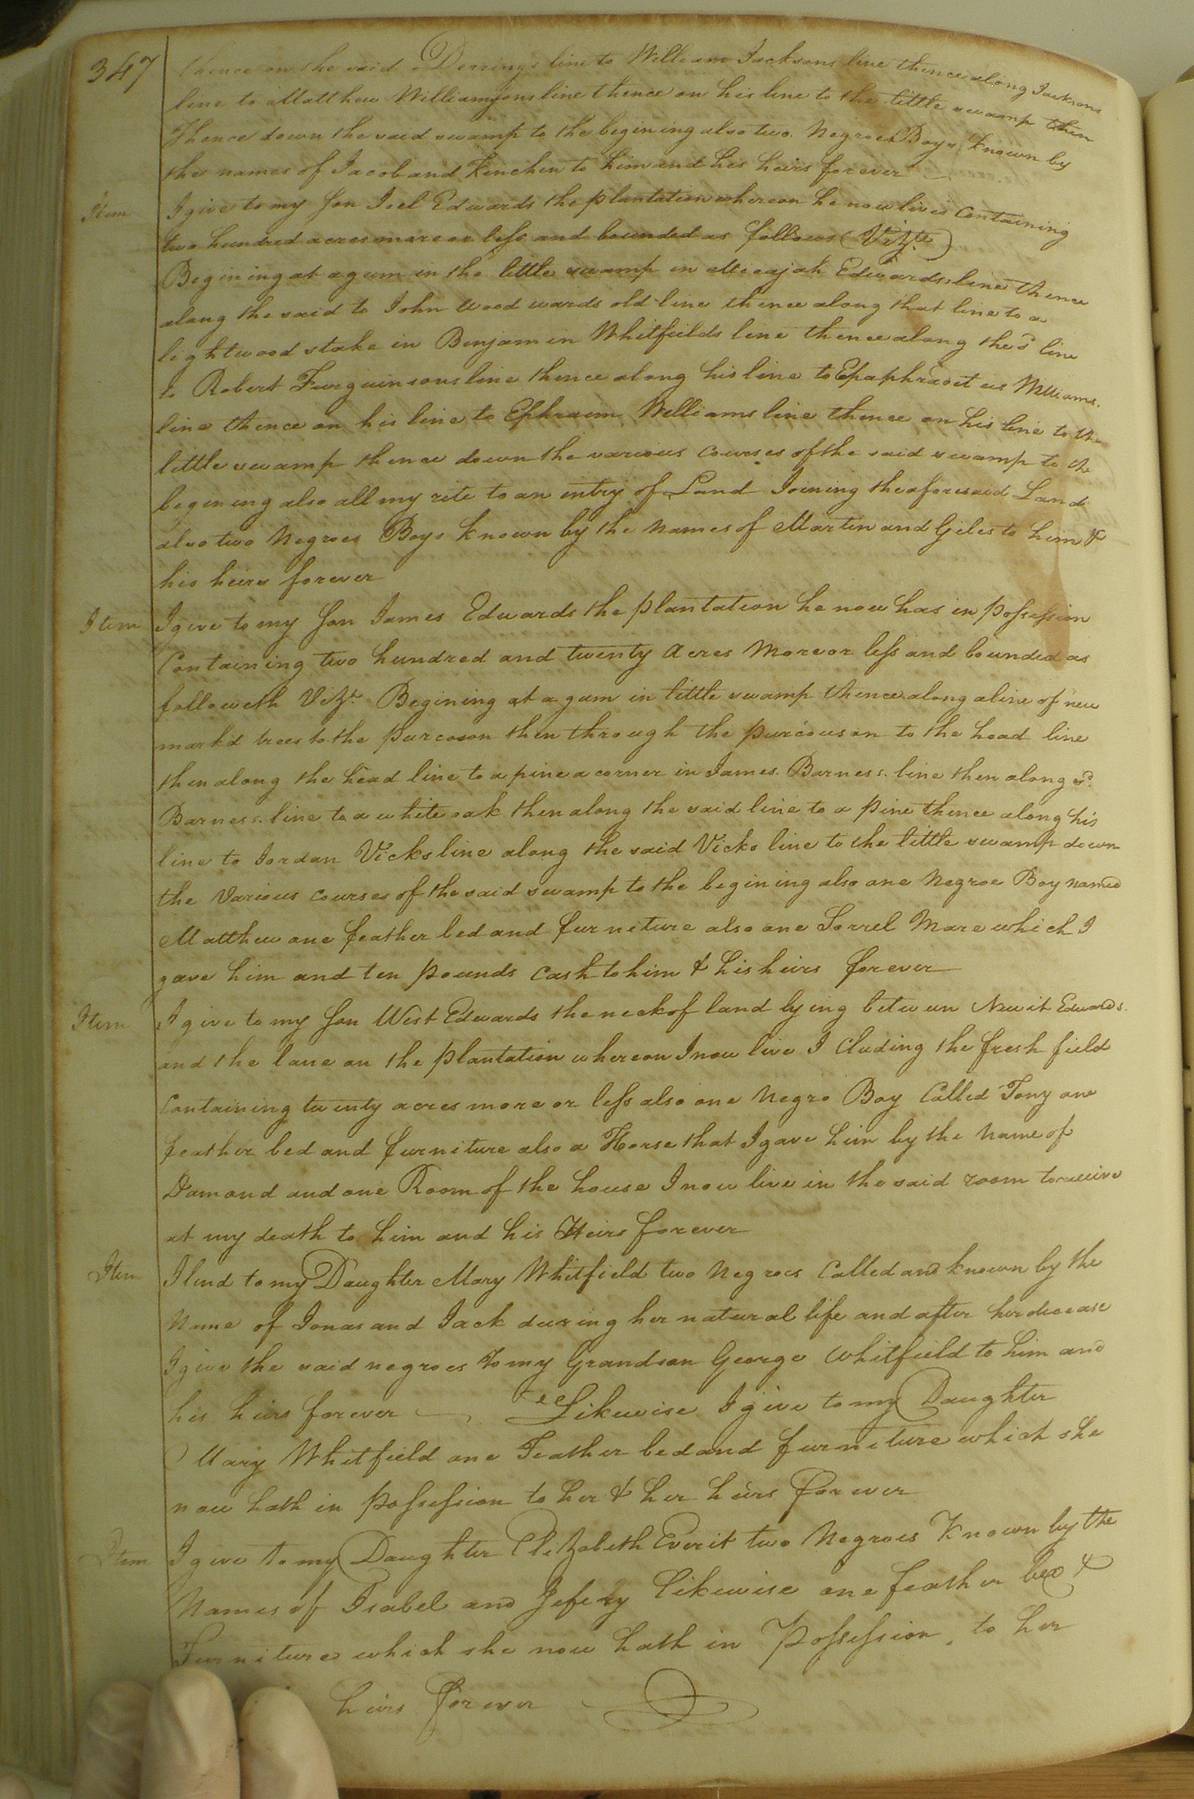 347
thence on the said Derrings line to William Jacksons line thence along Jacksons
line to Matthew Williamsons line thence on his line to the little swamp then
thence down the said swamp to the begining also two Negroes Boys known by
the names of Jacob and Kinchen to him and his heirs forever
Item I give to my Son Joel Edwards the plantation whereon he now lives Containing
two hundred acres more or less and bounded as follows (Vizt.)
Begining at a gum in the little swamp in Micajah Edwards line thence
along the said to John Woodwards old line thence along that line to a
lightwood stake in Benjamin Whitfields line thence along the sd line
to Robert Furguinsons line thence along his line to Epaphrodit us Williams
line thence on his line to Ephraim Williams line thence on his line to the
little swamp thence down the various Courses of the said swamp to the
begining also all my rite to an entry of Land Joining the aforesaid Land
also two Negroes Boys known by the Names of Martin and Giles to him &
his heirs forever
Item I give to my Son James Edwards the plantation he now has in possession
Containing two hundred and twenty Acres More or less and bounded as
followeth Vizt. Begining at a gum in little swamp thence along a line of new
mark'd trees to the purcoson then through the purcouson to the head line
then along the head line to a pine a corner in James Barness line then along sd.
Barness line to a white oak then along the said line to a pine thence along his
line to Jordan Vicks line along the said Vicks line to the little swamp down
the Various courses of the said swamp to the begining also one Negroe Boy named
Matthew one feather bed and furniture also one Sorrel Mare which I
gave him and ten pounds cash to him & his heirs forever
Item I give to my Son West Edwards the neck of land lying betwen Newit Edwards
and the lane on the plantation whereon I now live I Cluding the fresh field
Containing twenty acres more or less also one Negro Boy Called Tony one
feather bed and furniture also a Horse that I gave him by the Name of
Damond and one Room of the house I now live in the said room to receive
at my death to him and his Heirs forever
Item I lend to my Daughter Mary Whitfield two Negroes Called and known by the
Name of Jonas and Jack during her natural life and after her decease
I give the said negroes to my Grandson George Whitfield to him and
his heirs forever Likewise I give to my Daughter
Mary Whitfield one Feather bed and furniture which she
now hath in possession to her & her heirs forever
Item I give to my Daughter Elizabeth Everit two Negroes Known by the
Names of Isabel and Jefery likewise one feather bed &
Furniture which she now hath in Possession to her
heirs forever